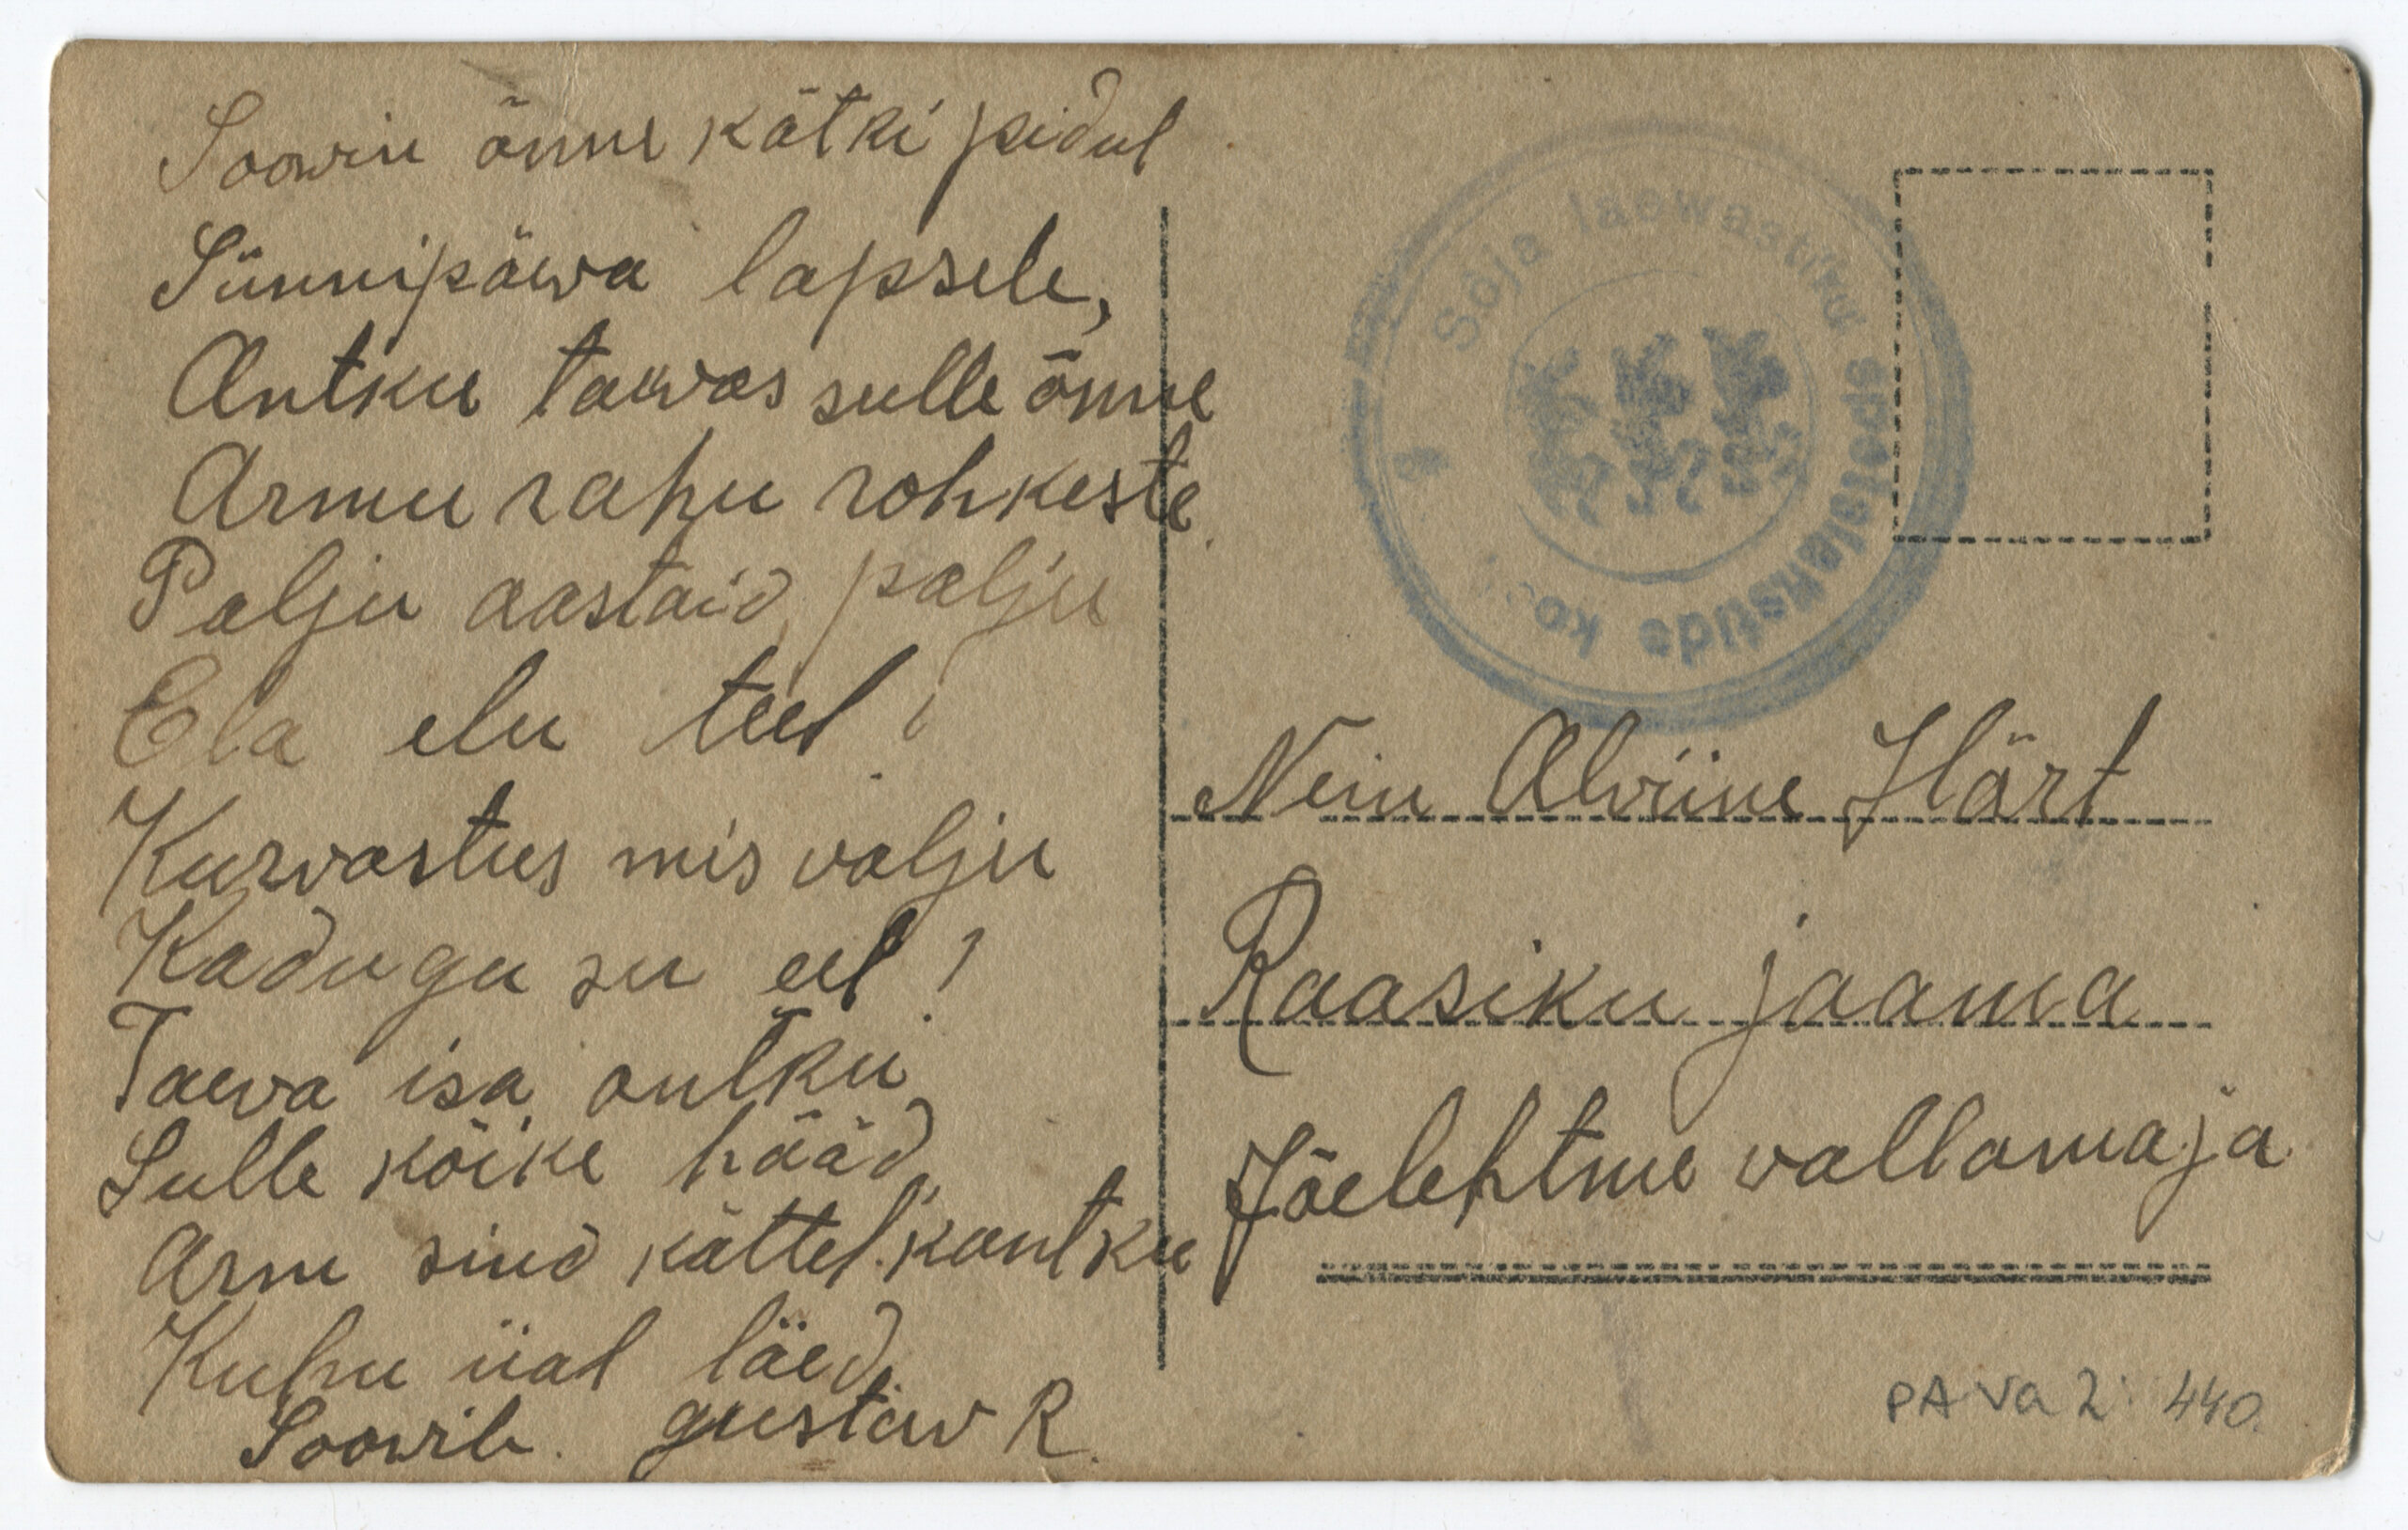 Soowin õnne kätki pidul
Sünnipäwa lapsele,
Antku taewas sulle õnne
Armu rahu rohkeste.
Palju aastaid, palju
Ela elu teel!
Kurvastus mis valju
Kadugu su eel!
Taeva isa antku
Sulle kõike hääd,
Arm sind kättel kantku
Kuhu iial läed.
Soowib. gustaw R.
Sõja laewastiku spetsialistide
Neiu Alviine Härt
Raasiku jaama
Jõelehtme vallamaja
PA Va 2: 440.